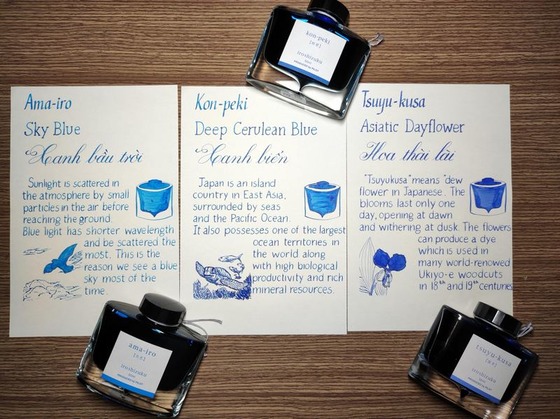 kon-peki
iroshizuku
Ama-iro
Sky Blue
Xanh bầu trời
Sunlight is scattered in
the atmosphere by small
particles in the air before
reaching the ground.
Blue light has shorter wavelength
and be scattered the
most. This is the
reason we see a blue
sky most of the
time.
Kon-peki
Deep Cerulean Blue
Xanh biển
Japan is an island
country in East Asia,
surrounded by seas
and the Pacific Ocean.
It also possesses one of the largest
ocean territories in
the world along
with high biological
productivity and rich
mineral resources.
Tsuyu-kusa
Asiatic Dayflower
Hoa thài lài
"Tsuyukusa" means "dew
flower in Japanese. The
blooms last only one
day, opening at dawn
and withering at dusk. The flowers
can produce a dye
which is used in
many world-renowned
Ukiyo-e woodcuts
in 18th and 19th centuries
ama-iro
iroshizuku
tsuyu-kusa
iroshizuku